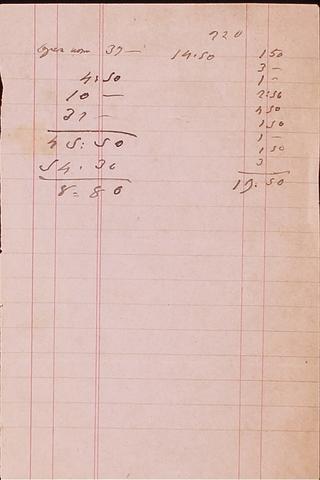 720
31 — 14.50 1 50
3 —
4:50 1 —
10 — 2:50
31 — 4 50
45:50 1 50
54.30 1 —
8:80 1 50
3
19.50